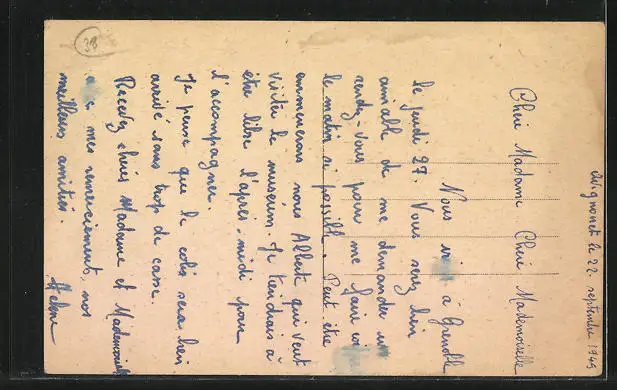 Avignonet le 22 septembre 1949
Cheré Madame Cheré Mademoiselle
Nous à Grenoble
le Jeudi 27. Vous serez bien
aimable de me demander un
rendez-vous pour me faire
le matin si possible. Peut être
emmenerons nous Albert qui veut
visiter le muséum. Je tiendrais à
être libre l'après-midi pour
l'acompagner.
Je pense que le colis sera bien
arrivé sans trop de casse.
Recevez chéres Madame et Mademoiselle
mes remerciements, nos
meilleurs amitiés.
38